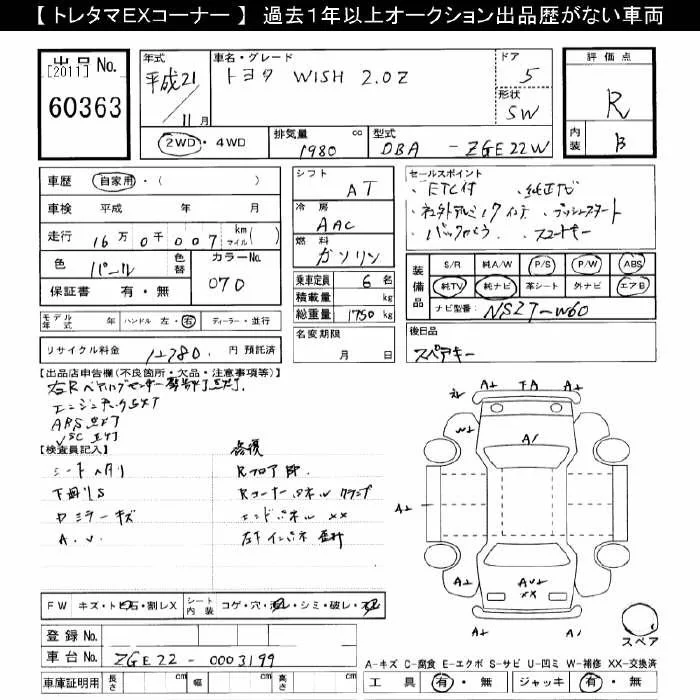 【 トレタマEXコーナー 】 過去１年以上オークション出品歴がない車両
出品No.
[2011]
60363
年式
平成21
/
11月
車名・グレード
トヨタ WISH 2.0Z
ドア
5
形状
SW
評価点
R
内装
B
2WD・4WD
排気量 cc
1980
型式
DBA - ZGE22W
車歴 自家用・( )
車検 平成 年 月
走行 16万0千007 km マイル( )
色 パール 色替 カラーNo. 070
保証書 有・無
モデル年式 年 ハンドル 左・右 ディーラー・並行
リサイクル料金 12780. 円 預託済
シフト
AT
冷房
AAC
燃料
ガソリン
乗車定員 6名
積載量 kg
総重量 1750 kg
名変期限
月 日
セールスポイント
・ETC付 ・純正ナビ
・社外アルミ17インチ ・プッシュスタート
・バックカメラ ・スマートキー
装備品
S/R 純A/W P/S P/W ABS
純TV 純ナビ 革シート 外ナビ エアB
ナビ型番: NSZT-W60
後日品
スペアキー
【出品店申告欄(不良箇所・欠品・注意事項等)】
エンジンチェック
ABS点灯
VSC 点灯
【検査員記入】
修復
シート
下廻りS
Rフロア
Rコーナーパネル
ドミラーキズ
エンドパネル XX
A.U.
左インパネ
A1 TA A1
A1
W1
A1
A1 AU2 A1
XX
A1 A1
スペア
FW キズ・トビ石・割レX シート内装 コゲ・穴・ ・シミ・破レ・
登録No.
車台No. ZGE22-0003199
車庫証明用 長さ cm 幅 cm 高さ cm
A-キズ C-腐食 E-エクボ S-サビ U-凹ミ W-補修 XX-交換済
工具 有・無 ジャッキ 有・無